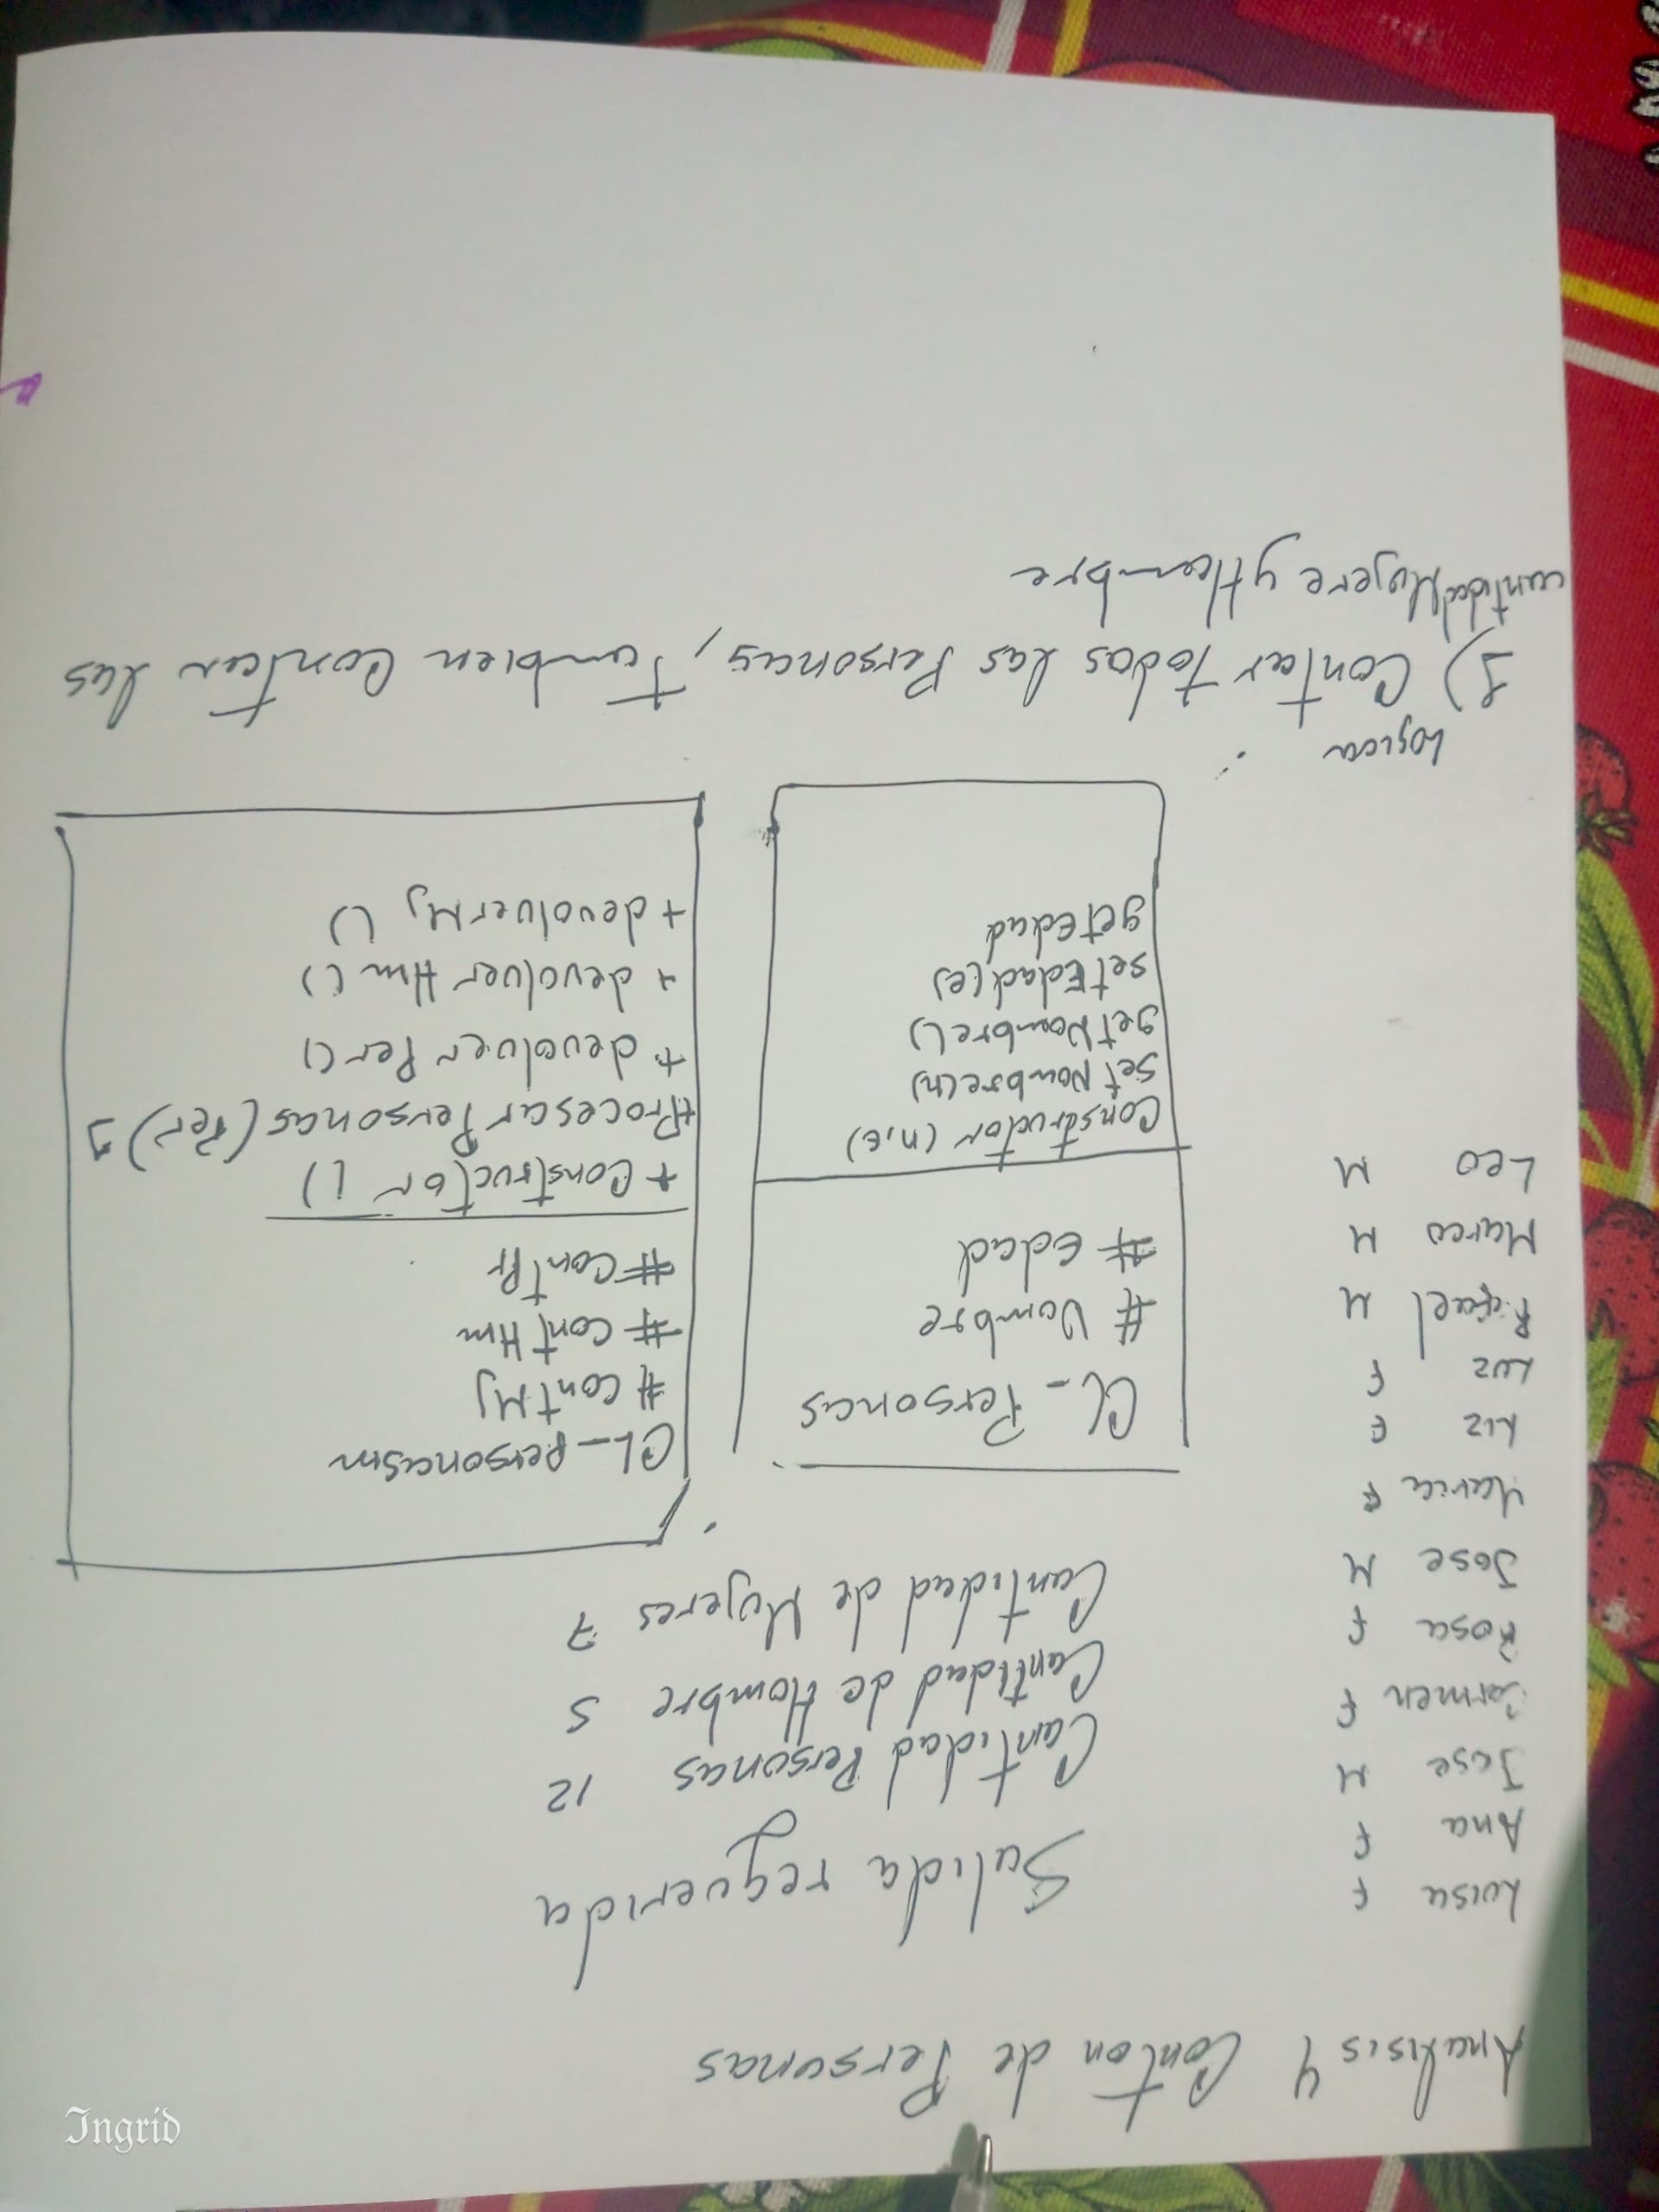 Analisis 4 Conton de Personas
Luisa F
Ana F
Jose M
Carmen F
Rosa F
Jose M
Maria F
Liz F
Luz F
Rafael M
Marco M
Leo M
Salida requerida
Cantidad Personas 12
Cantidad de Hombre 5
Cantidad de Mujeres 7
CL-Personas
# Nombre
# Edad
Constructor (n,e)
setNombre(n)
getNombre()
setEdad(e)
getEdad
CL-Personasm
# contMj
# contHm
# contPr
+ Constructor ()
+ Procesar Personas (Per)
+ devolver Per()
+ devolver Hm()
+ devolverMj ()
Logica
1) Contar Todas las Personas, Tambien Contar las
cantidad Mujere y Hombre
Ingrid